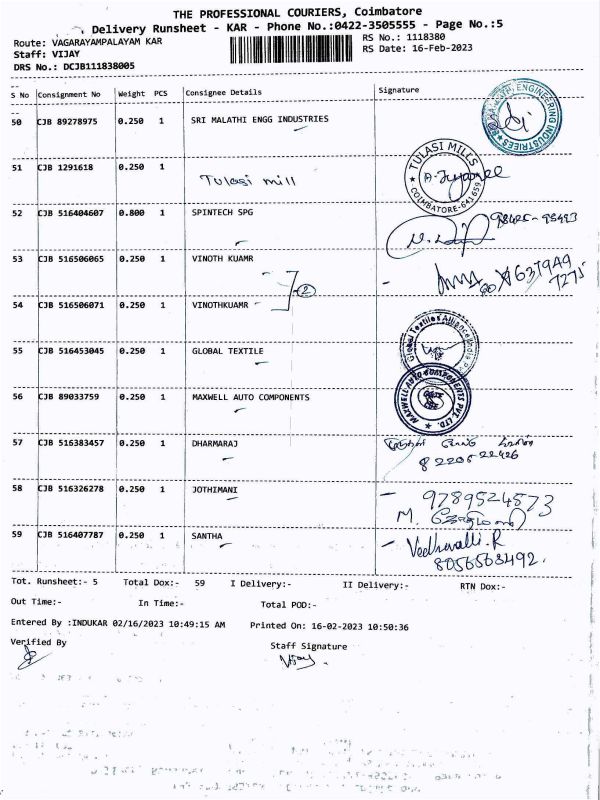 THE PROFESSIONAL COURIERS, Coimbatore
Delivery Runsheet - KAR - Phone No.:0422-3505555 - Page No.:5
Route: VAGARAYAMPALAYAM KAR
RS No.: 1118380
Staff: VIJAY
RS Date: 16-Feb-2023
DRS No.: DCJB111838005
S No Consignment No Weight PCS Consignee Details Signature
50 CJB 89278975 0.250 1 SRI MALATHI ENGG INDUSTRIES
ENGINEERING INDUSTRIES
51 CJB 1291618 0.250 1 Tulasi mill
TULASI MILLS
COIMBATORE-641659
52 CJB 516404607 0.800 1 SPINTECH SPG
53 CJB 516506065 0.250 1 VINOTH KUAMR
2
54 CJB 516506071 0.250 1 VINOTHKUAMR
55 CJB 516453045 0.250 1 GLOBAL TEXTILE
Global Textiles Alliance India
56 CJB 89033759 0.250 1 MAXWELL AUTO COMPONENTS
MAXWELL AUTO COMPONENTS PVT. LTD.
57 CJB 516383457 0.250 1 DHARMARAJ
8220522426
58 CJB 516326278 0.250 1 JOTHIMANI
9789524573
M.
59 CJB 516407787 0.250 1 SANTHA
Vedhavalli.R
8056563492.
Tot. Runsheet:- 5 Total Dox:- 59 I Delivery:- II Delivery:- RTN Dox:-
Out Time:- In Time:- Total POD:-
Entered By :INDUKAR 02/16/2023 10:49:15 AM Printed On: 16-02-2023 10:50:36
Verified By
Staff Signature
Vijay